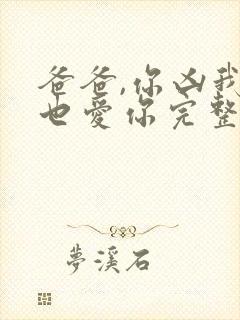 爸爸,你凶我
也愛你完整
夢溪石